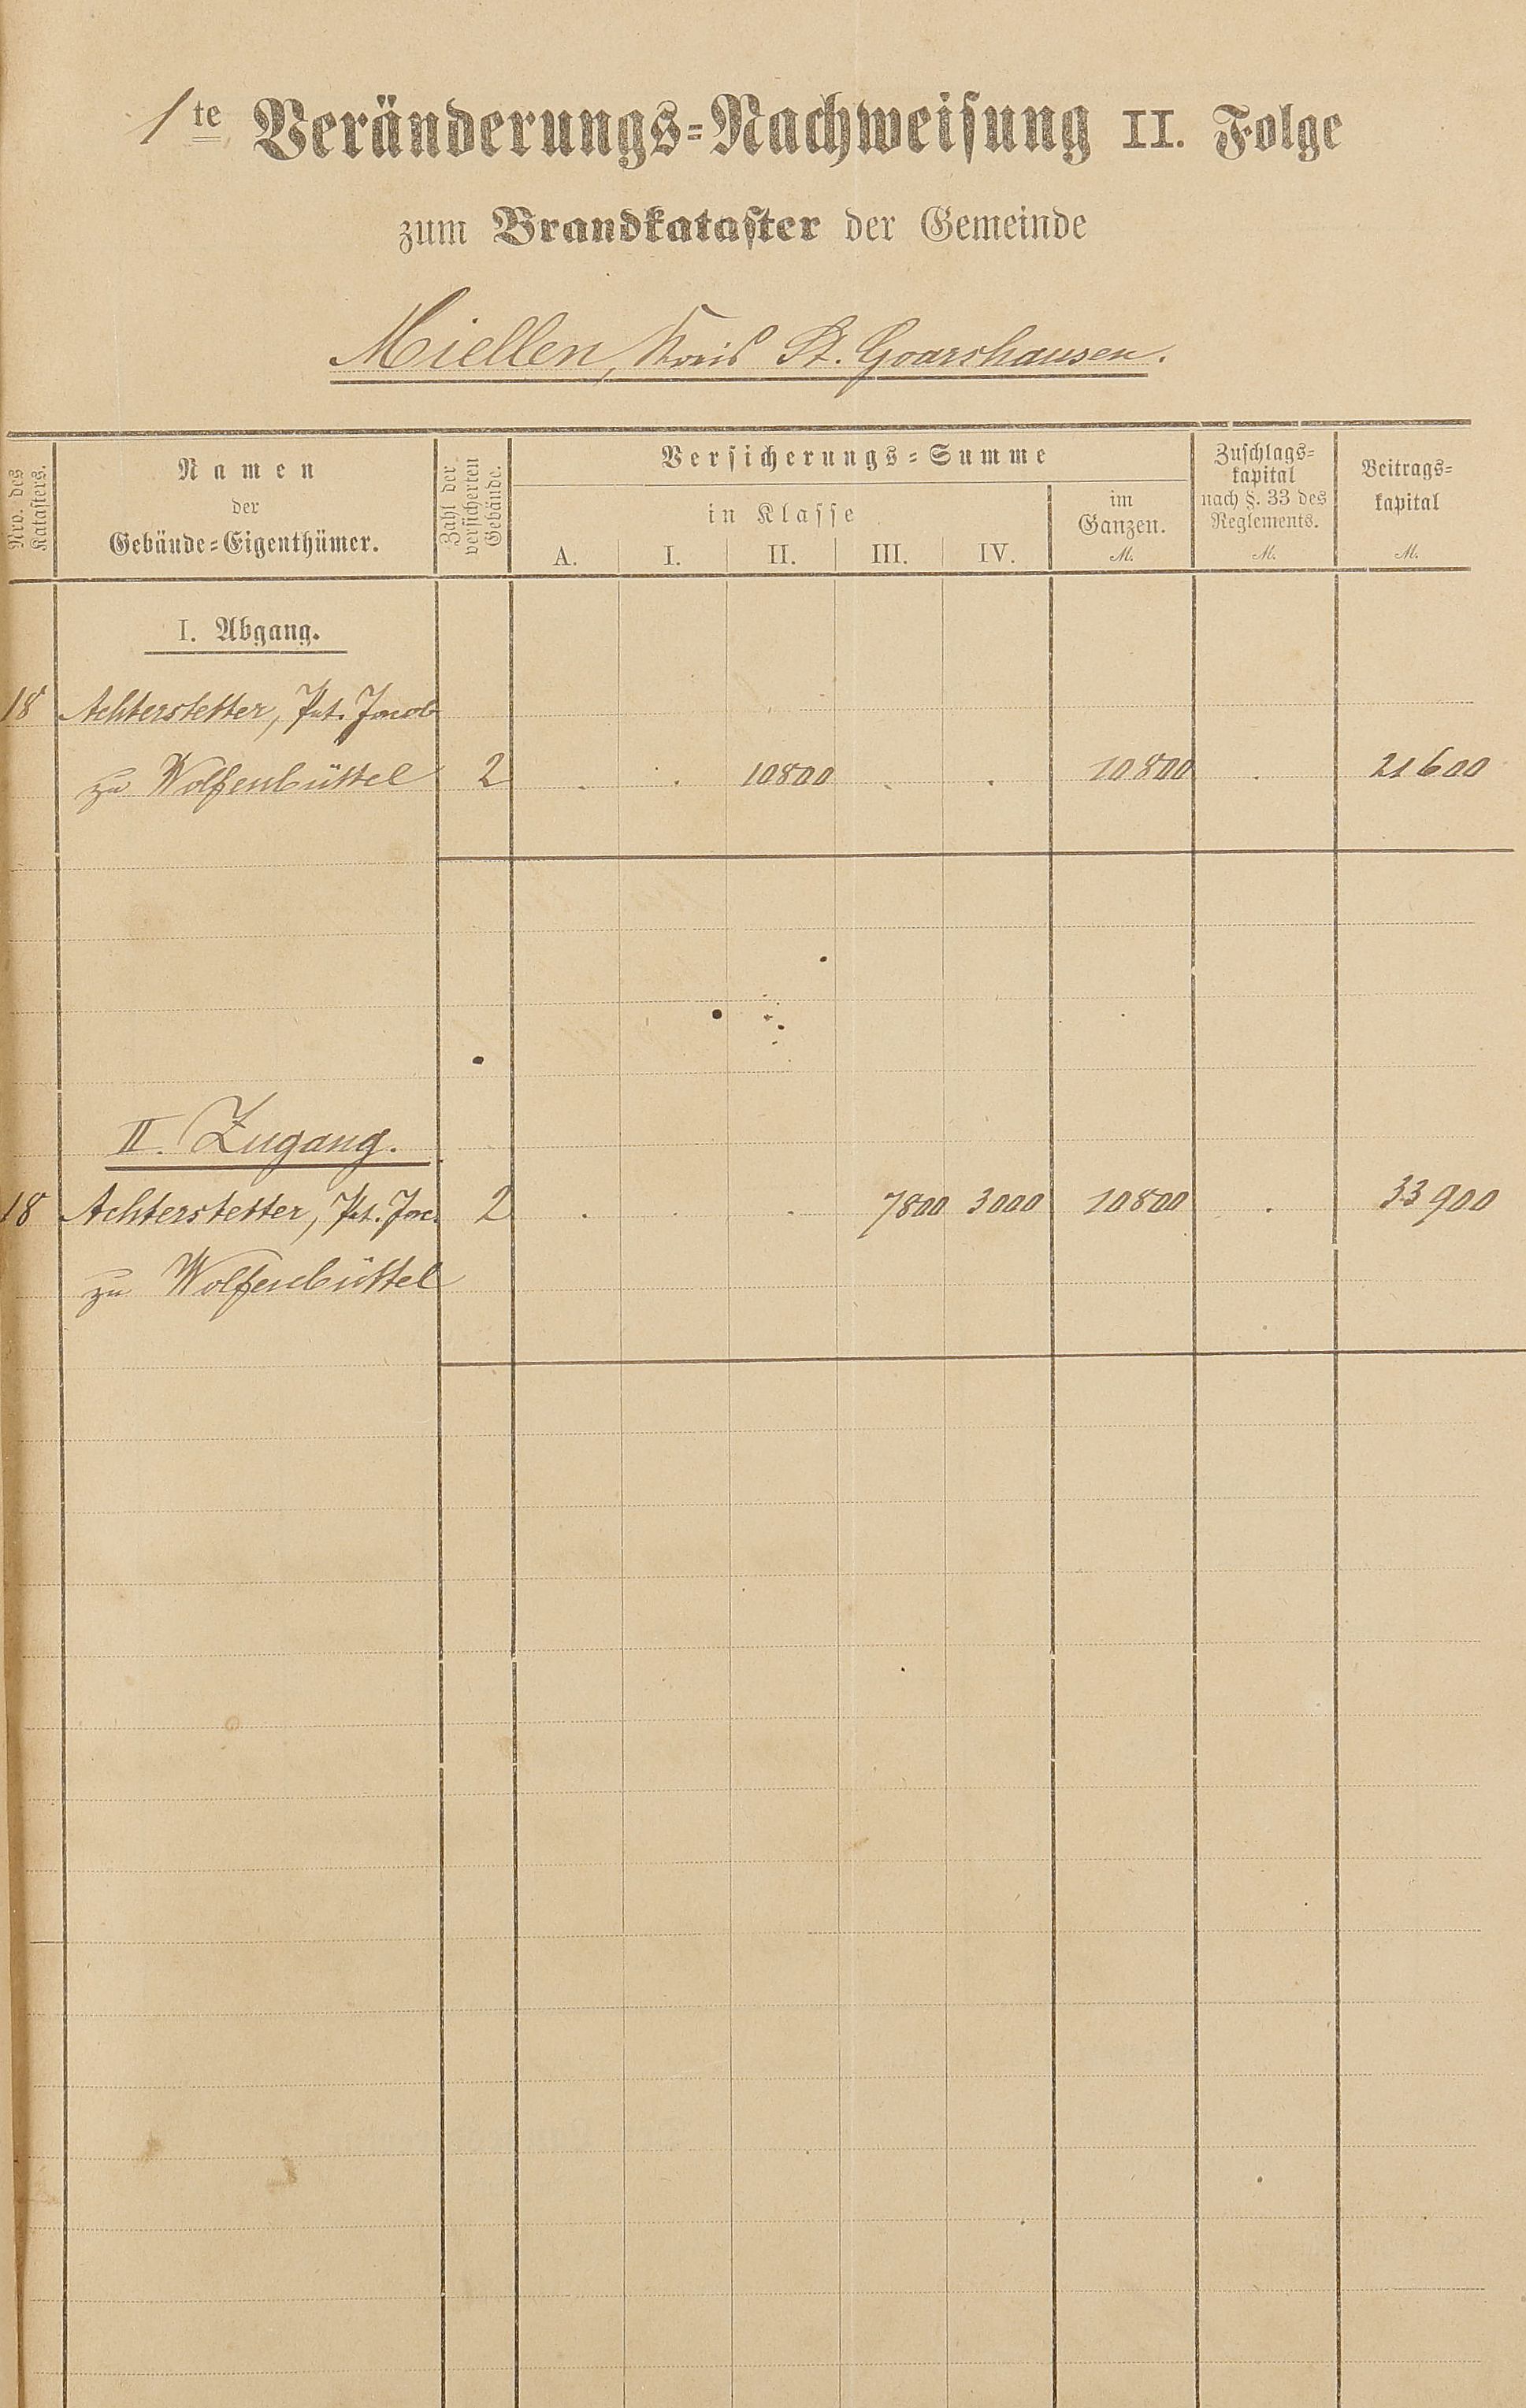 1te Veränderungs-Nachweisung II. Folge
zum Brandkataster der Gemeinde
Miellen, Kreis St. Goarshausen.
Nro. des Katasters.
Namen
der
Gebäude-Eigenthümer.
Zahl der versicherten Gebäude.
Versicherungs-Summe
in Klasse
A. I. II. III. IV.
im
Ganzen.
M.
Zuschlags-
kapital
nach §. 33 des
Reglements.
M.
Beitrags-
kapital
M.
I. Abgang.
18 Achterstetter, Pet. Jacob
zu Wolfenbüttel 2 . . 10800 . . 10800 . 21600
II. Zugang.
18 Achterstetter, Pet. Jac. 2 . . . 7800 3000 10800 . 33900
zu Wolfenbüttel